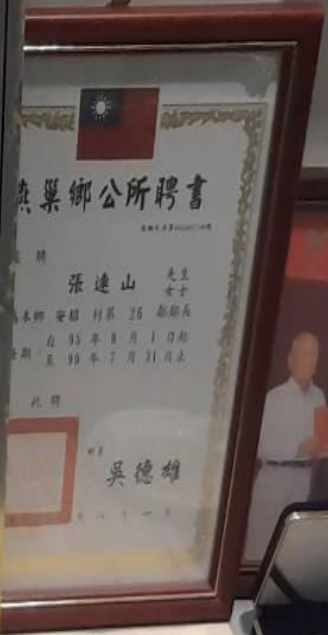 燕巢鄉公所聘書
聘
張連山 先生
女士
本鄉 安招 村第 26 鄰鄰長
自 95 年 8 月 1 日起
期 至 99 年 7 月 31 日止
此聘
鄉長
吳德雄
八 月 一